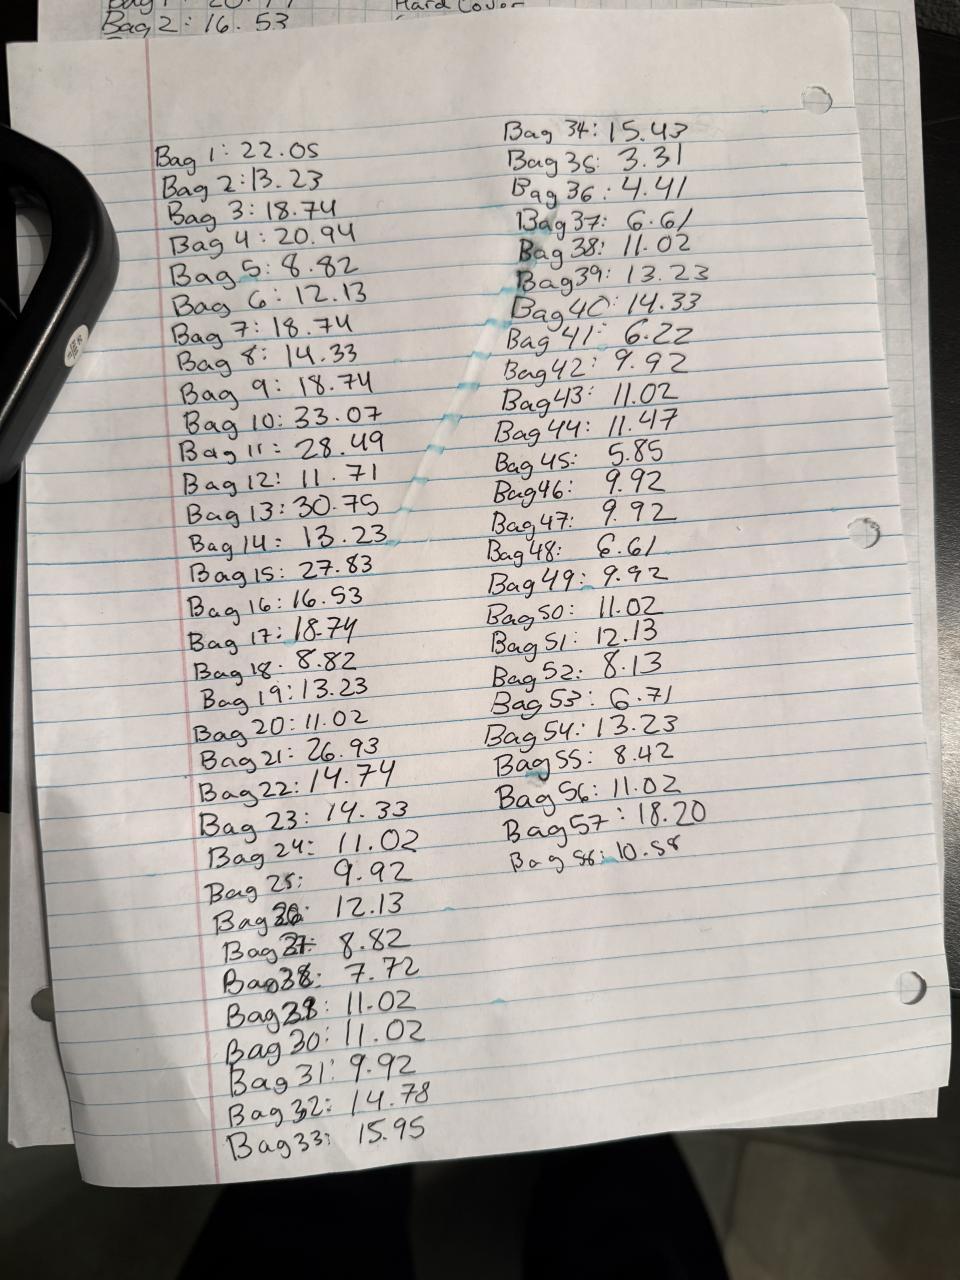 Bag 2: 16.53
Hard Cover
Bag 1: 22.05
Bag 2: 13.23
Bag 3: 18.74
Bag 4: 20.94
Bag 5: 8.82
Bag 6: 12.13
Bag 7: 18.74
Bag 8: 14.33
Bag 9: 18.74
Bag 10: 33.07
Bag 11: 28.49
Bag 12: 11.71
Bag 13: 30.75
Bag 14: 13.23
Bag 15: 27.83
Bag 16: 16.53
Bag 17: 18.74
Bag 18: 8.82
Bag 19: 13.23
Bag 20: 11.02
Bag 21: 26.93
Bag 22: 14.74
Bag 23: 14.33
Bag 24: 11.02
Bag 25: 9.92
Bag 26: 12.13
Bag 27: 8.82
Bag 28: 7.72
Bag 29: 11.02
Bag 30: 11.02
Bag 31: 9.92
Bag 32: 14.78
Bag 33: 15.95
Bag 34: 15.43
Bag 35: 3.31
Bag 36: 4.41
Bag 37: 6.61
Bag 38: 11.02
Bag 39: 13.23
Bag 40: 14.33
Bag 41: 6.22
Bag 42: 9.92
Bag 43: 11.02
Bag 44: 11.47
Bag 45: 5.85
Bag 46: 9.92
Bag 47: 9.92
Bag 48: 6.61
Bag 49: 9.92
Bag 50: 11.02
Bag 51: 12.13
Bag 52: 8.13
Bag 53: 6.71
Bag 54: 13.23
Bag 55: 8.42
Bag 56: 11.02
Bag 57: 18.20
Bag 58: 10.58